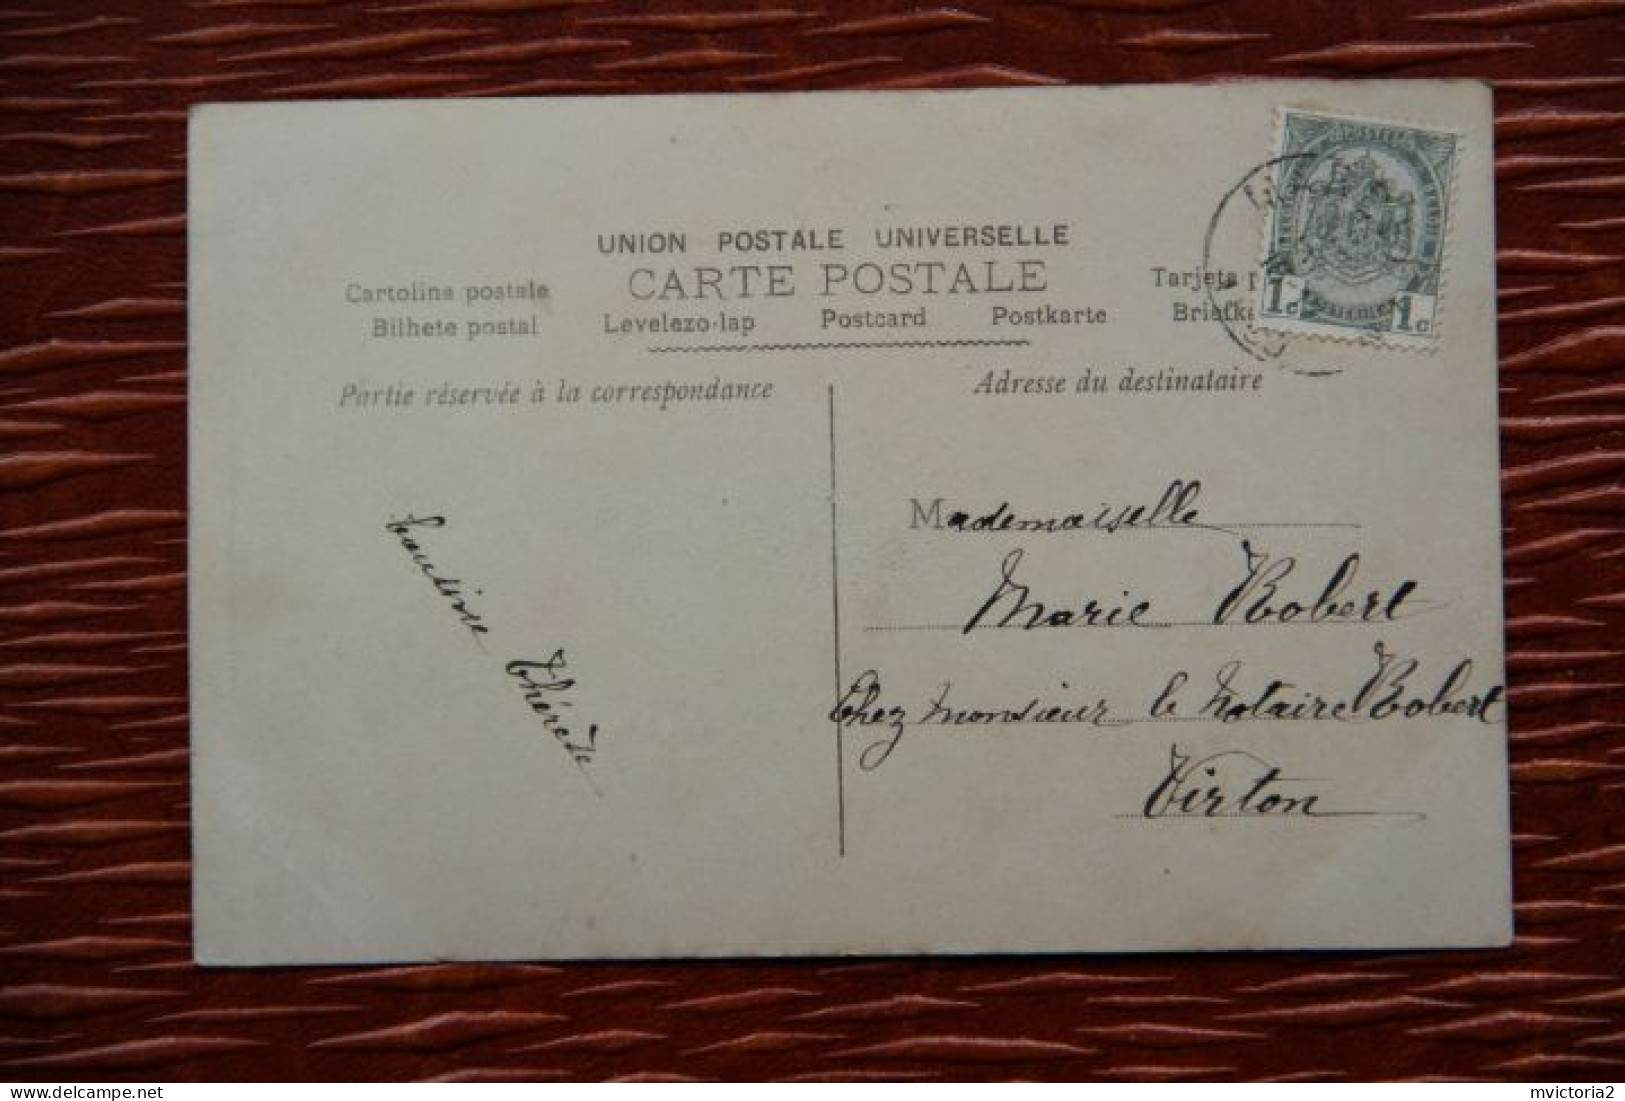 UNION POSTALE UNIVERSELLE
CARTE POSTALE
Cartolina postale
Tarjeta p
Bilhete postal
Levelezo-lap
Postcard
Postkarte
Briefka
1c
1c
Partie réservée à la correspondance
Adresse du destinataire
Mademoiselle
Marie Robert
Chez Monsieur le Notaire Robert
Virton
Cousine Thérèse
delcampe.net
mvictoria2